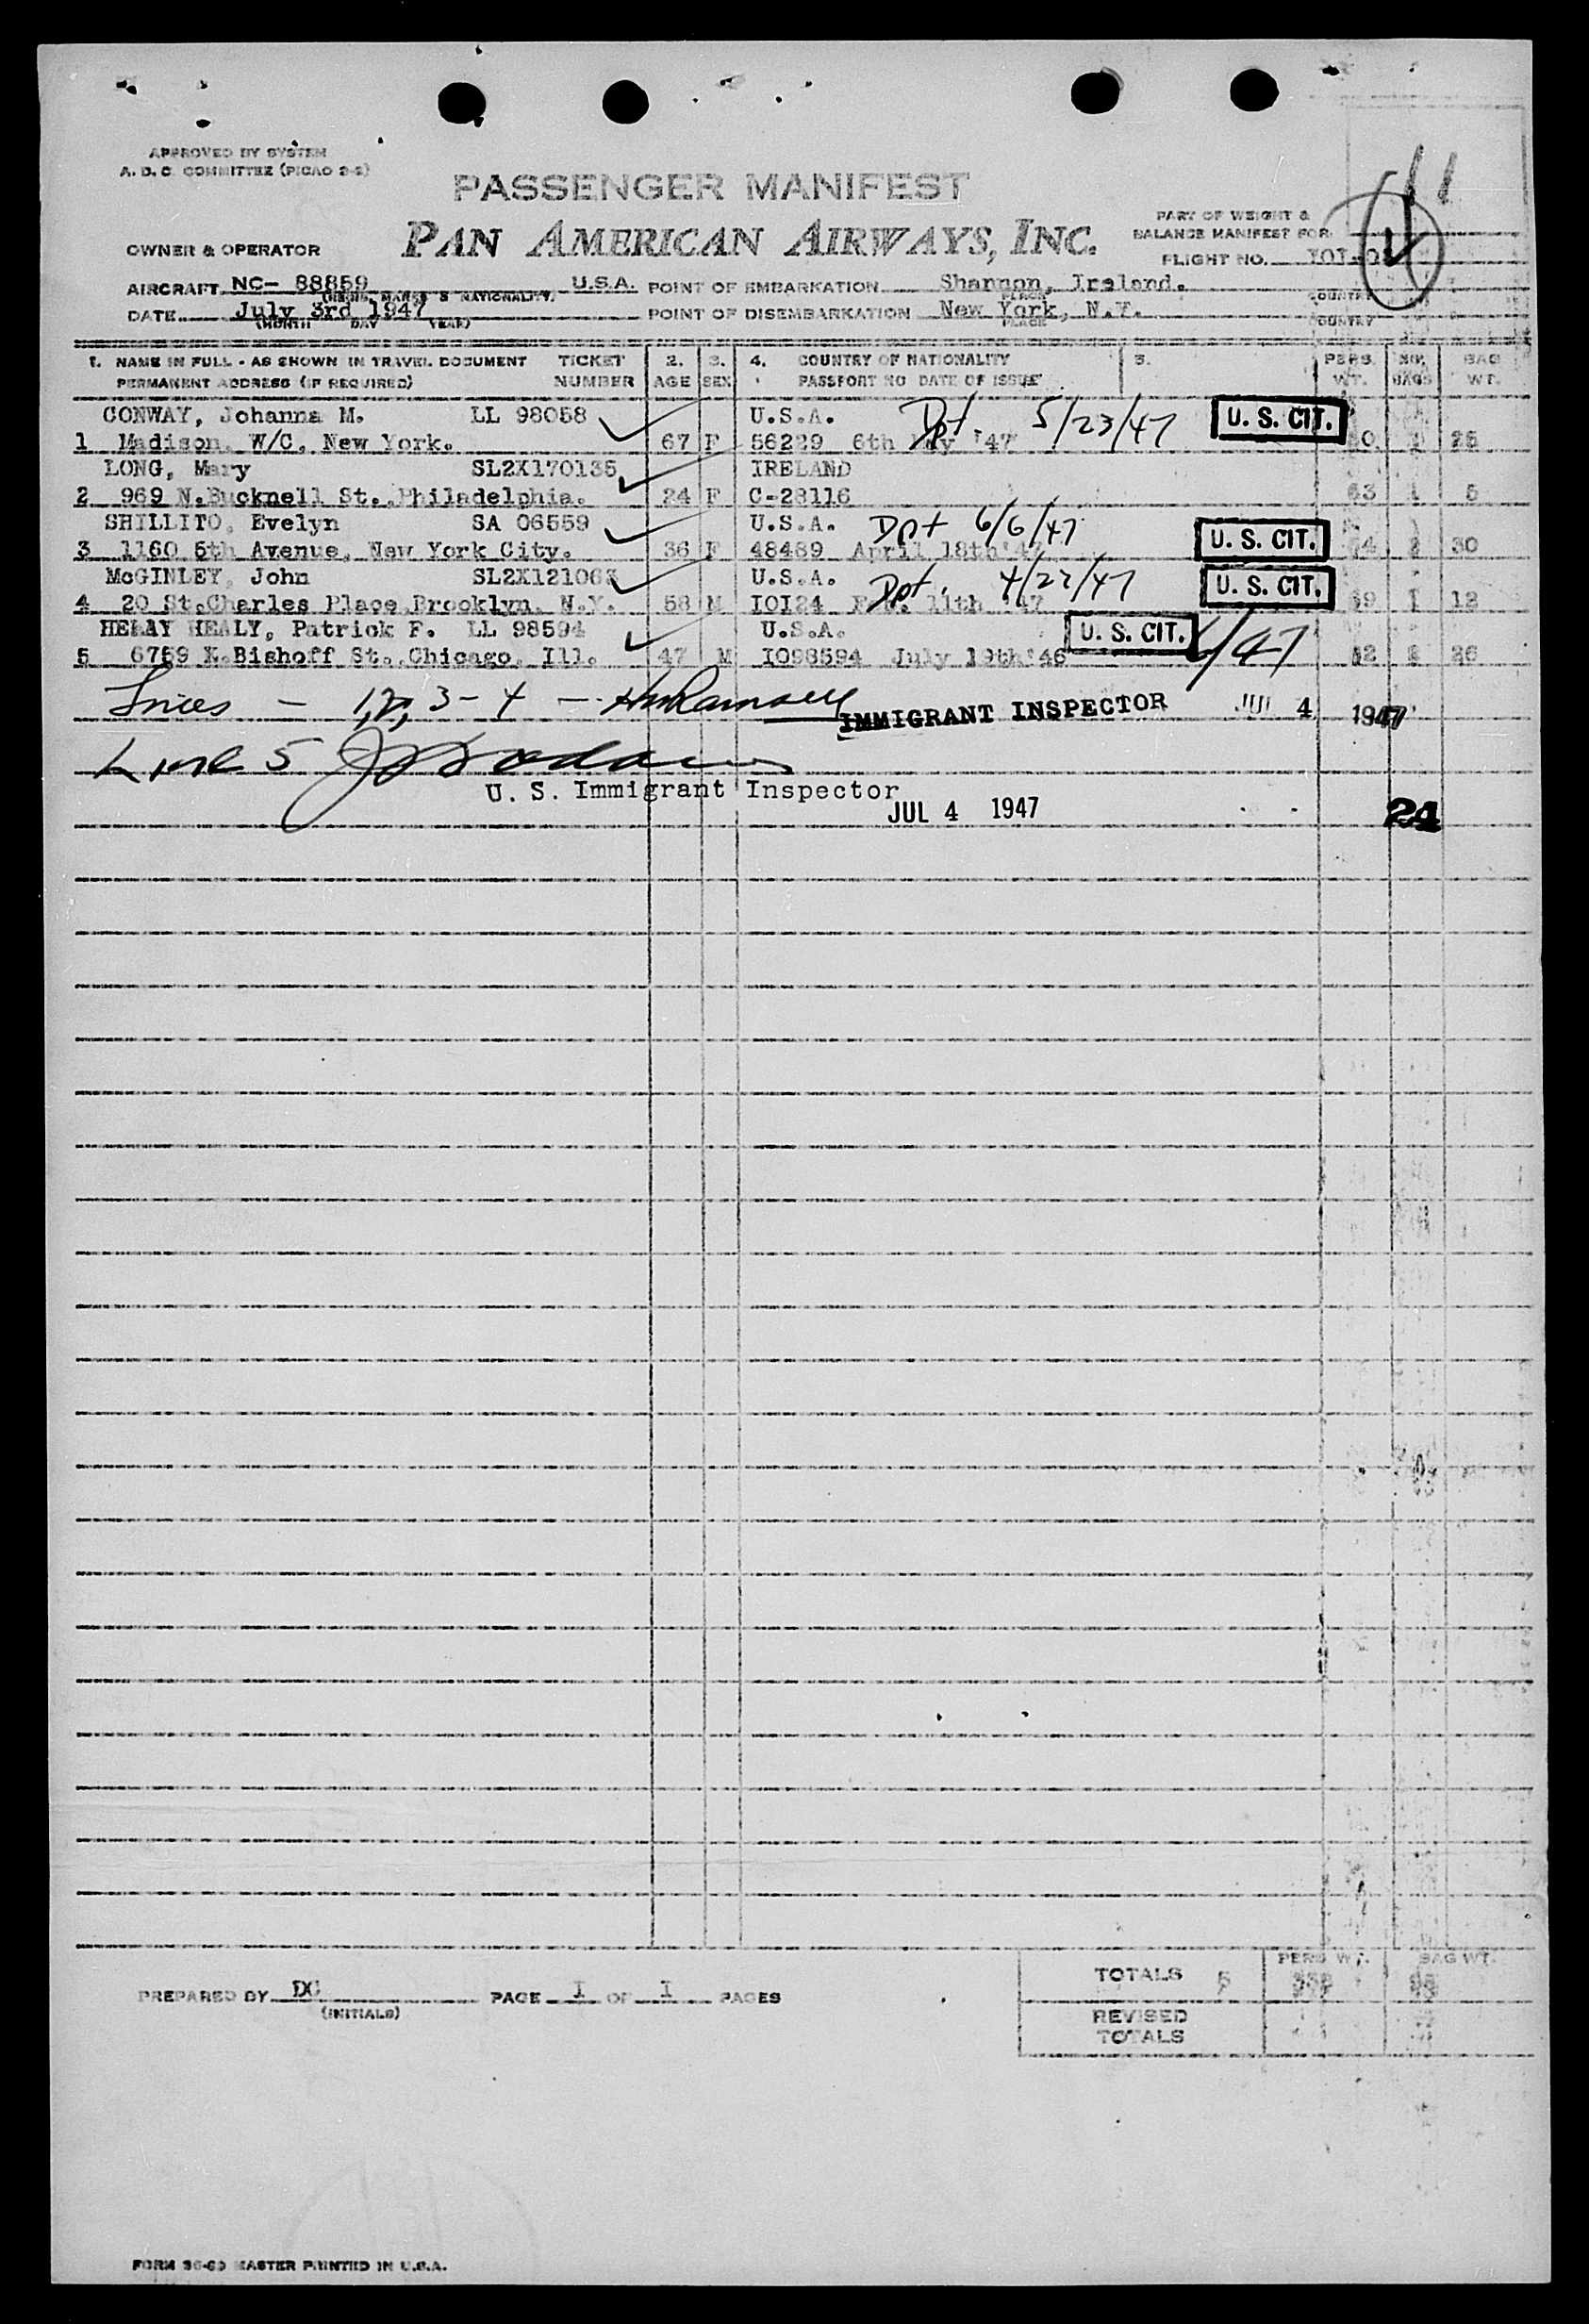 APPROVED BY SYSTEM
A. D. C. COMMITTEE (PICAO 2-2)
11
PASSENGER MANIFEST
PART OF WEIGHT &
BALANCE MANIFEST FOR
OWNER & OPERATOR PAN AMERICAN AIRWAYS, INC.
FLIGHT NO.
AIRCRAFT NC- 88859 U.S.A. POINT OF EMBARKATION Shannon, Ireland.
MARKS & NATIONALITY) PLACE COUNTRY
DATE July 3rd 1947 POINT OF DISEMBARKATION New York, N.Y.
(MONTH DAY YEAR) PLACE COUNTRY
1. NAME IN FULL - AS SHOWN IN TRAVEL DOCUMENT TICKET 2. 3. 4. COUNTRY OF NATIONALITY 5. PERS. NO. BAG
PERMANENT ADDRESS (IF REQUIRED) NUMBER AGE SEX PASSPORT NO DATE OF ISSUE WT. BAGS WT.
CONWAY, Johanna M. LL 98058 U.S.A. Dpt. 5/23/47 U. S. CIT.
1 Madison, W/C, New York. 67 F 56229 6th May '47
LONG, Mary SL2X170135 IRELAND
2 969 N.Bucknell St., Philadelphia. 24 F C-28116 63 1 5
SHILLITO, Evelyn SA 06559 U.S.A. Dpt 6/6/47 U. S. CIT.
3 1160 5th Avenue, New York City. 36 F 48489 April 18th '47 2 30
McGINLEY, John U.S.A. Dpt. 4/27/47 U. S. CIT.
4 20 St.Charles Place, Brooklyn, N.Y. 58 M IOI24 11th '47 1 12
HEALY, Patrick F. LL 98594 U.S.A. U. S. CIT. /47
5 6759 Bishoff St., Chicago, Ill. 47 M IO98594 July 19th '46 26
Lines - 1,2, 3 - 4 - IMMIGRANT INSPECTOR JUL 4 1947
Line 5
U. S. Immigrant Inspector
JUL 4 1947 24
TOTALS 5 PERS WT. BAG WT.
PREPARED BY DC PAGE I OF I PAGES
(INITIALS)
REVISED
TOTALS
FORM 36-60 MASTER PRINTED IN U.S.A.